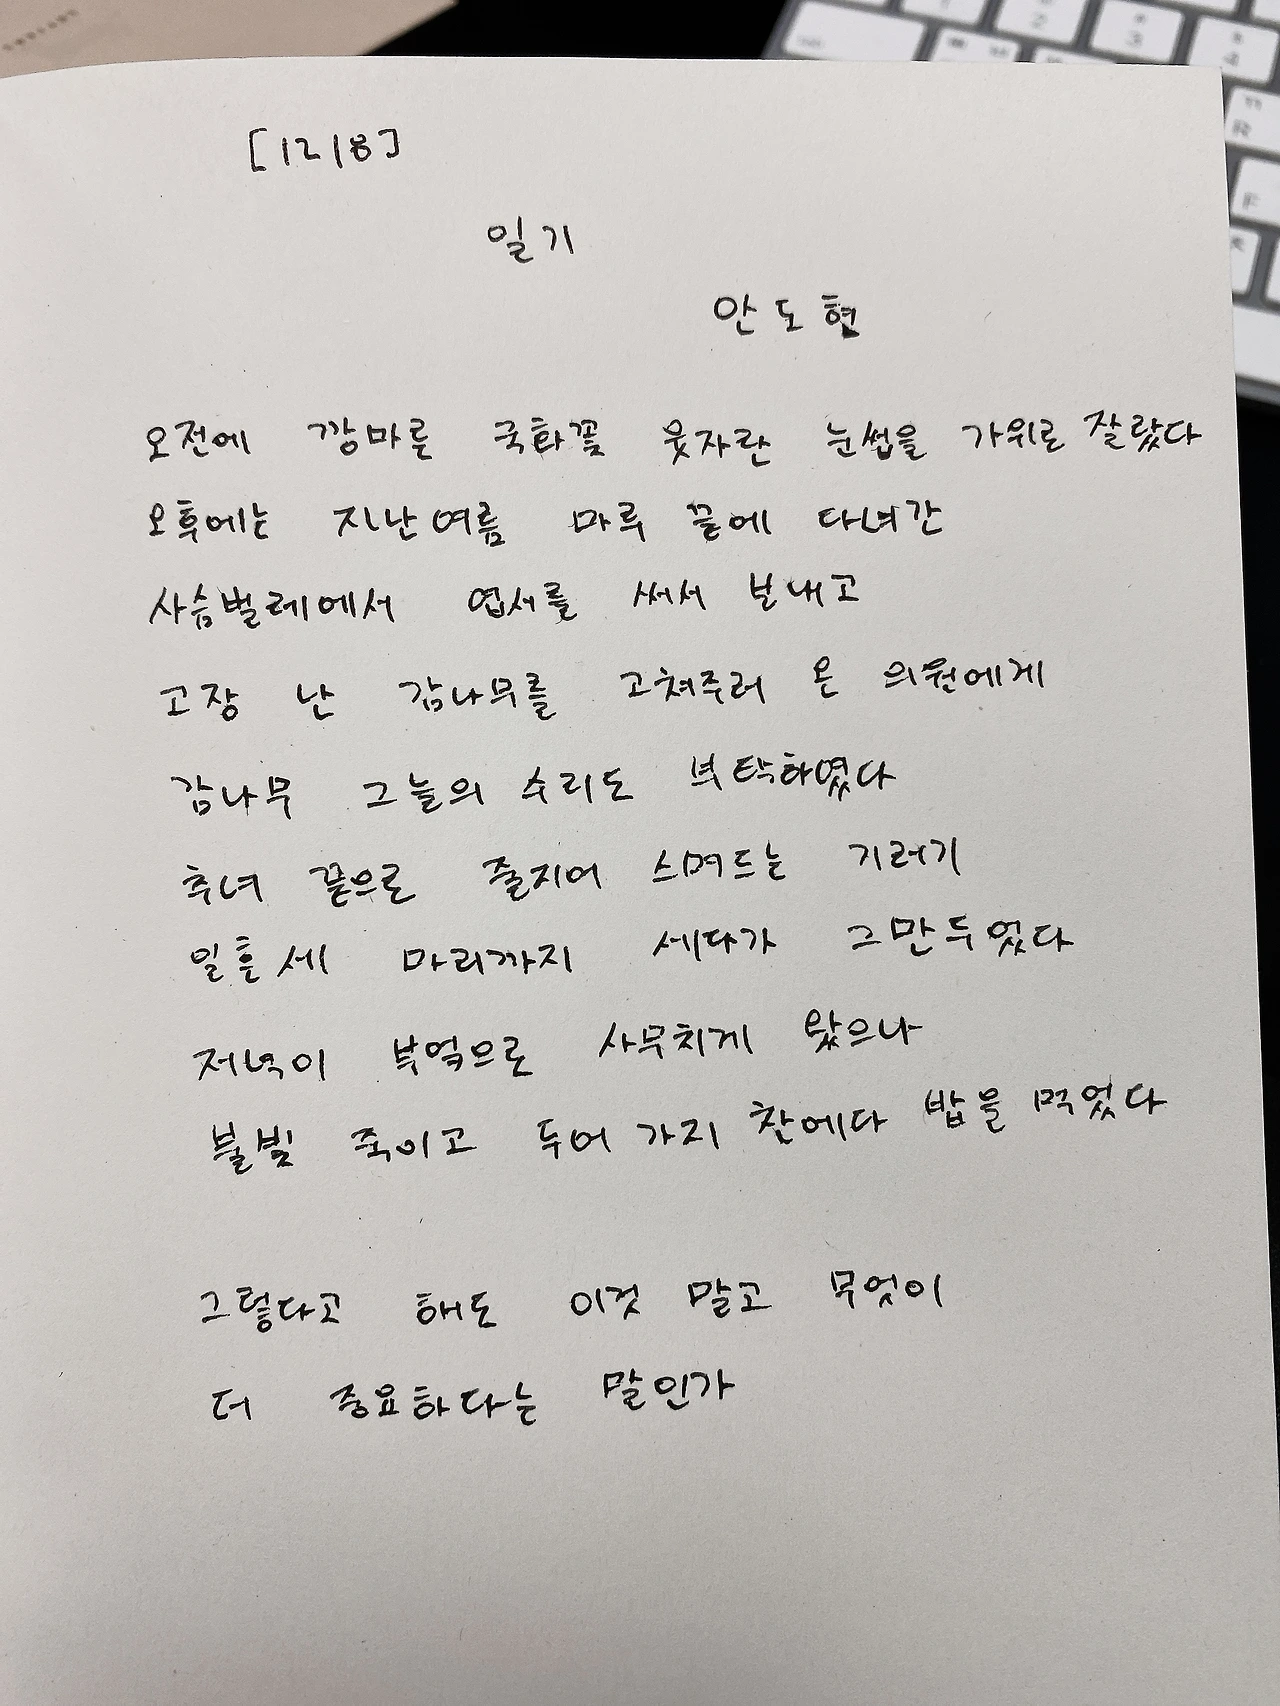 [1218]
일기
안도현
오전에 깡마를 국화꽃 웃자란 눈썹을 가위로 잘랐다
오후에는 지난여름 마루 끝에 다녀간
사슴벌레에서 엽서를 써서 보내고
고장 난 감나무를 고쳐주러 온 의원에게
감나무 그늘의 수리도 부탁하였다
추녀 끝으로 줄지어 스며드는 기러기
일흔세 마리까지 세다가 그만두었다
저녁이 부엌으로 사무치게 왔으나
불빛 죽이고 두어 가지 찬에다 밥을 먹었다
그렇다고 해도 이것 말고 무엇이
더 중요하다는 말인가